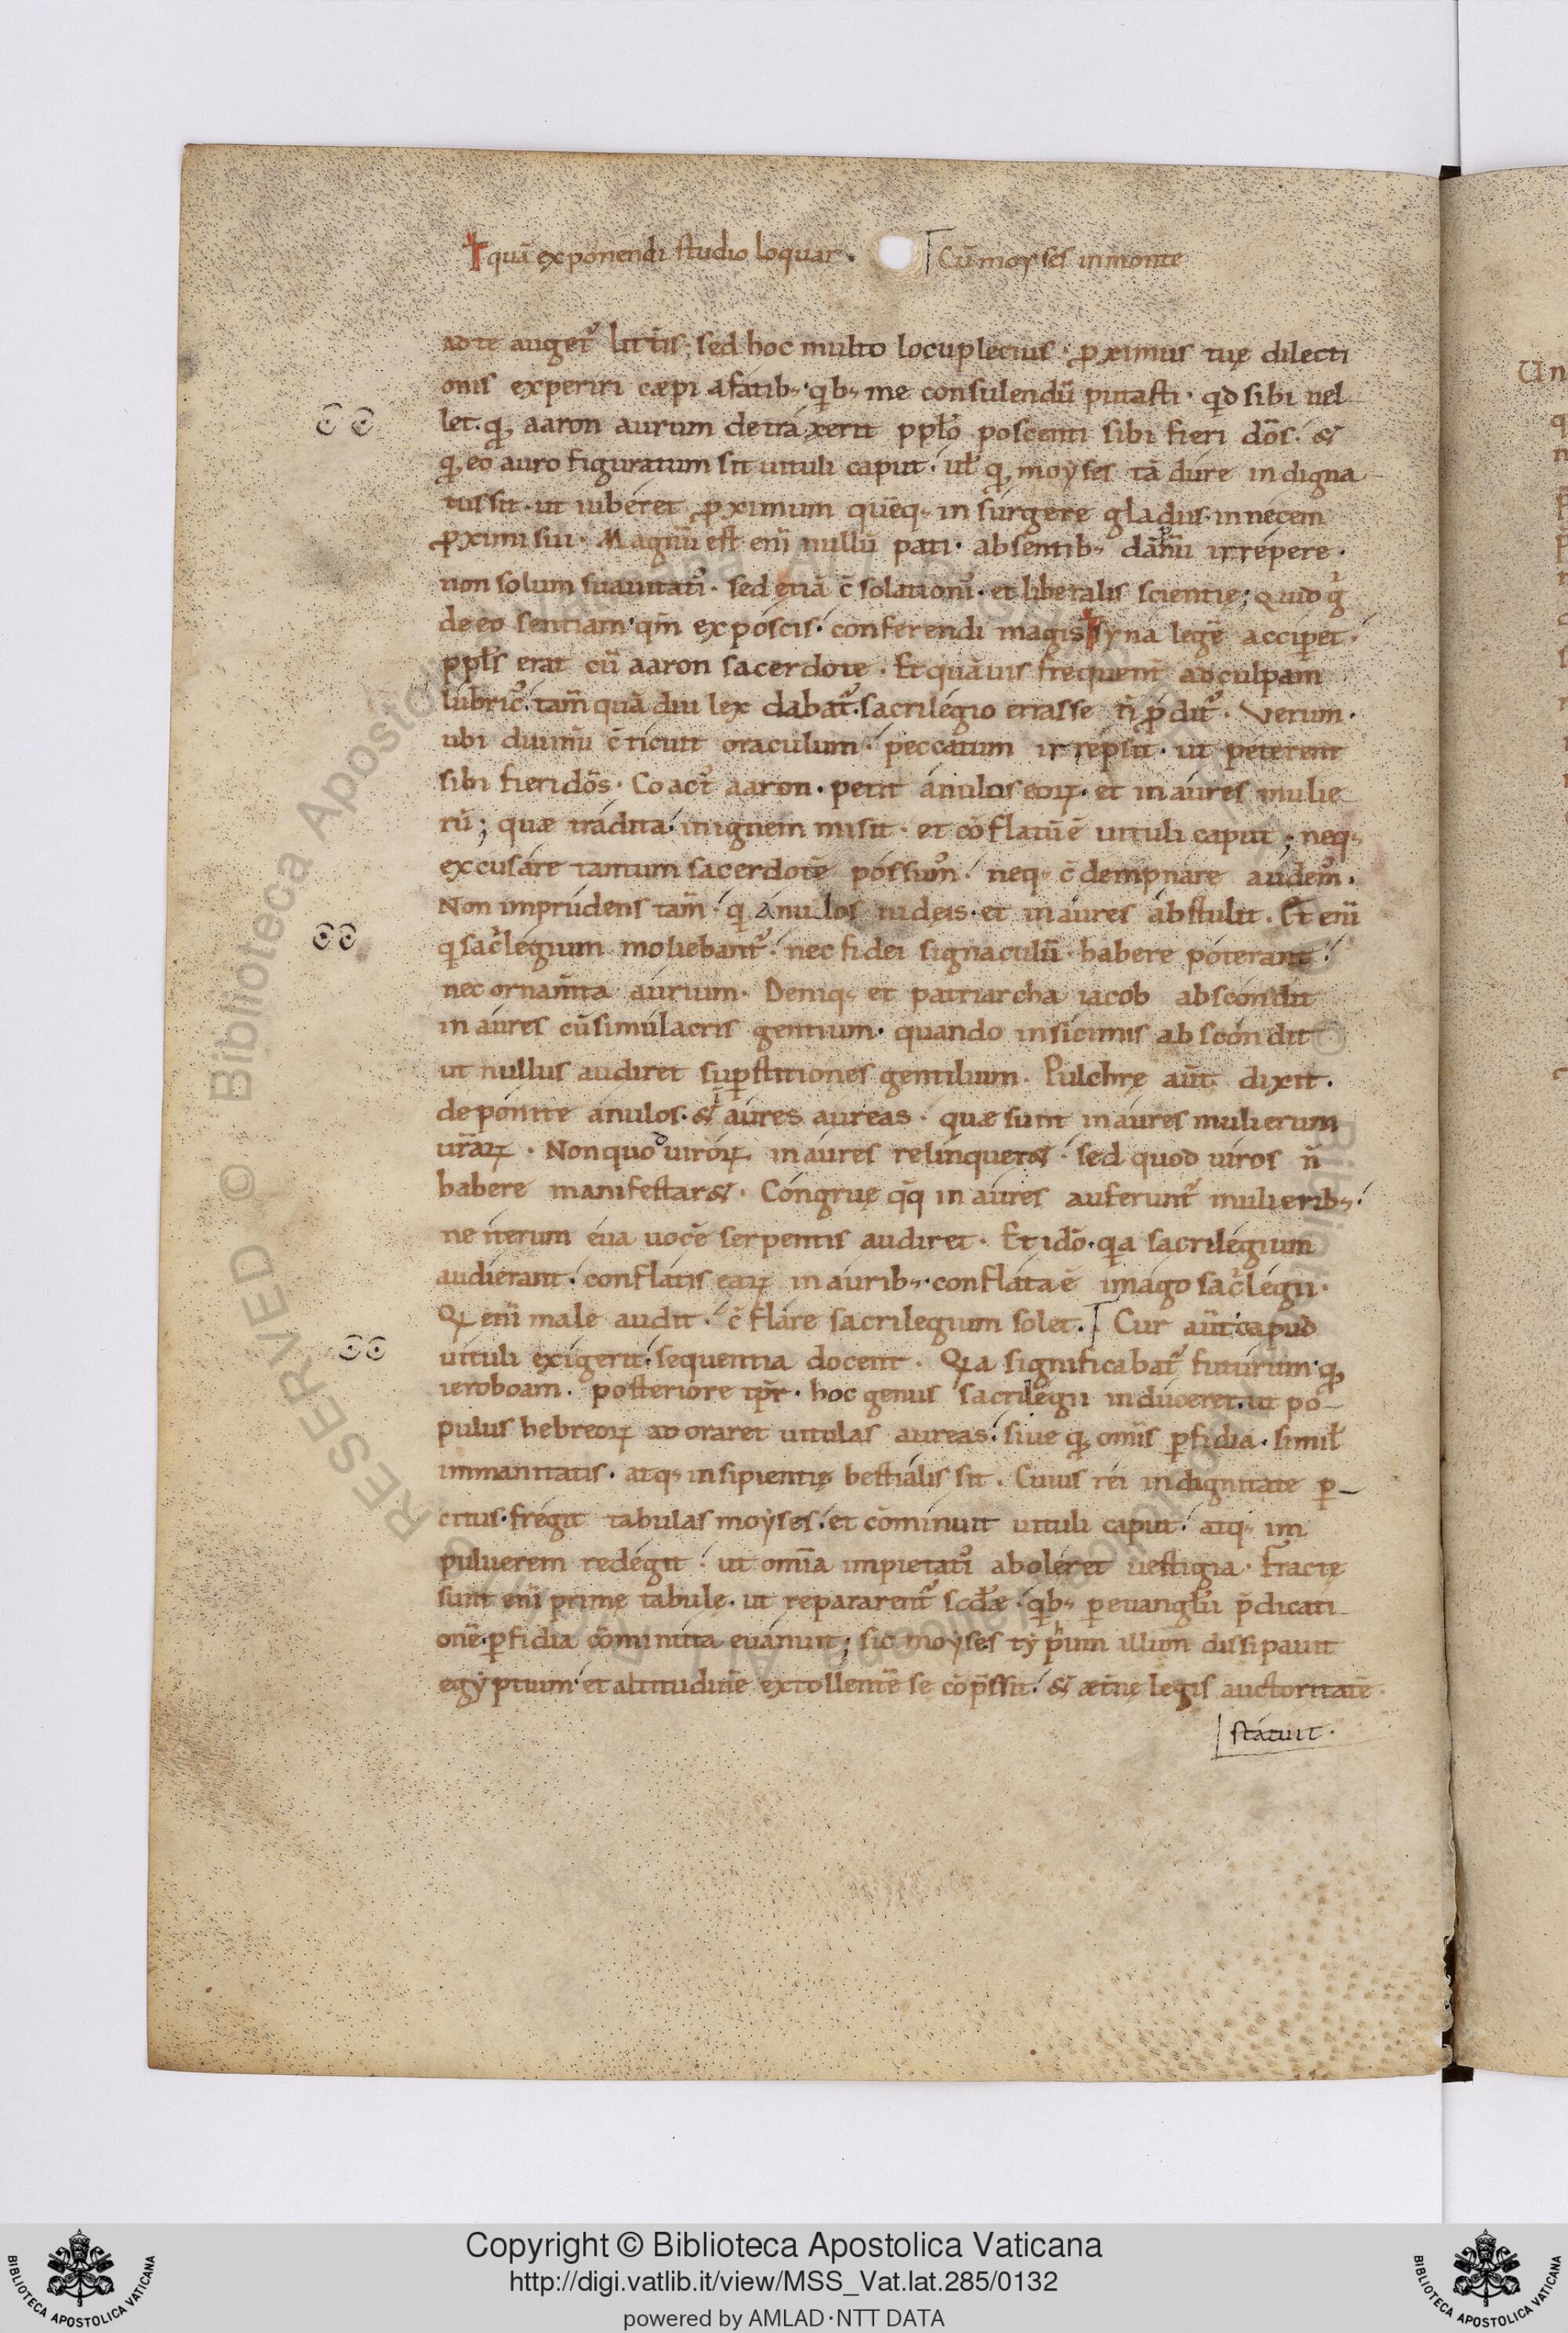 ✝quā exponendi studio loquar. ⌈Cū moyses in monte
ad te augeť litťis; sed hoc multo locuplecius. pximus tuę dilecti
onis experiri cæpi afatib; qb; me consulendū putasti. qd sibi uel
let. qđ aaron aurum detráxerit ppłó poscenti sibi fieri dōs. &
qđ eo auro figuratum sit uituli caput. uł qđ moyses tā dúre indigna
tus sit. ut iubéret pximum quēq; insúrgere gladiis. in nécem
pximi sui. Magnū est enī nullū pati. absentib; dānū irrépere.
non solum suauitati᾿. sed etiā c̄solationi᾿. et liberalis scientię; Quid g̊
de eo sentiam. qm̄ expóscis. conferendi magis✝syna legē acciṕet.
ppłs erat cū aaron sacerdote. Et quāuis frequenť ad culpam
lúbric᾿. tam̄ quā diu lex dabať. sacrilégio errasse n̄ pdiť. Verum.
ubi diuinū c̄ticuit oraculum. peccatum irrépsit. ut péterent
sibi fieri dōs. Coact᾿ aaron. petit ánulos eoꝝ. et ináures mulie
rū; quæ trádita. in ignem misit. et cōflatū ē uituli caput; neq;
excusáre tantum sacerdotē póssum᾿. neq; c̄dempnáre audém᾿.
Non imprúdens tam̄. q ánulos iudęis. et ináures ábstulit. Et enī
q sac̊légium moliebanť. nec fidei signaculū. habere póterant.
nec ornam̄ta aurium. Deniq; et patriarcha iacob abscóndit
ináures cū simúlacris gentium. quando in sicimis abscóndit
ut nullus audiret supstitiones gentilium. Pulchrę aūt dixit.
depónite ánulos. & ináures aureas. quæ sunt ináures mulierum
ur̄aꝝ. Non quod uiróꝝ ináures relinquer&. sed quod uiros n̄
habere manifestar&. Cóngruę q̄q ináures auferunť mulierib;.
ne iterum éua uocē serpentis audiret. Et idō. qa sacrilégium
audierant. conflátis eaꝝ inaurib;. confláta ē imágo sac̊légii.
Qi enī male audit. c̄fláre sacrilegium solet. ⌈Cur aūt capud
uituli exigerit. sequentia docent. Qia significabať futúrum. qđ
ieroboam. posteriore tp̄r. hoc genus sacrilégii indúceret. ut po-
pulus hebreoꝝ adoraret uitulas aureas. siue qđ om̄is pfidia. simił
immanitatis. atq; insipientię bestiális sit. Cuius réi indignitate p-
citus. frégit tabulas moyses. et cōminuit uituli caput. atq; im
puluerem redégit. ut om̄ia impietati᾿ aboléret uestigia. Fractę
sunt enī primę tabulę. ut repararenť scd̄æ. qb; p euangłiū p̄dicati
onē. pfidia cōminúta euánuit; sic moyses typúm illum dissipauit
egyptium. et altitudinē extollentē se cōp̄ssit. & æťnę legis auctoritatē.
⌊státuit.
Copyright © Biblioteca Apostolica Vaticana
http://digi.vatlib.it/view/MSS_Vat.lat.285/0132
powered by AMLAD·NTT DATA
BIBLIOTECA APOSTOLICA VATICANA
BIBLIOTECA APOSTOLICA VATICANA